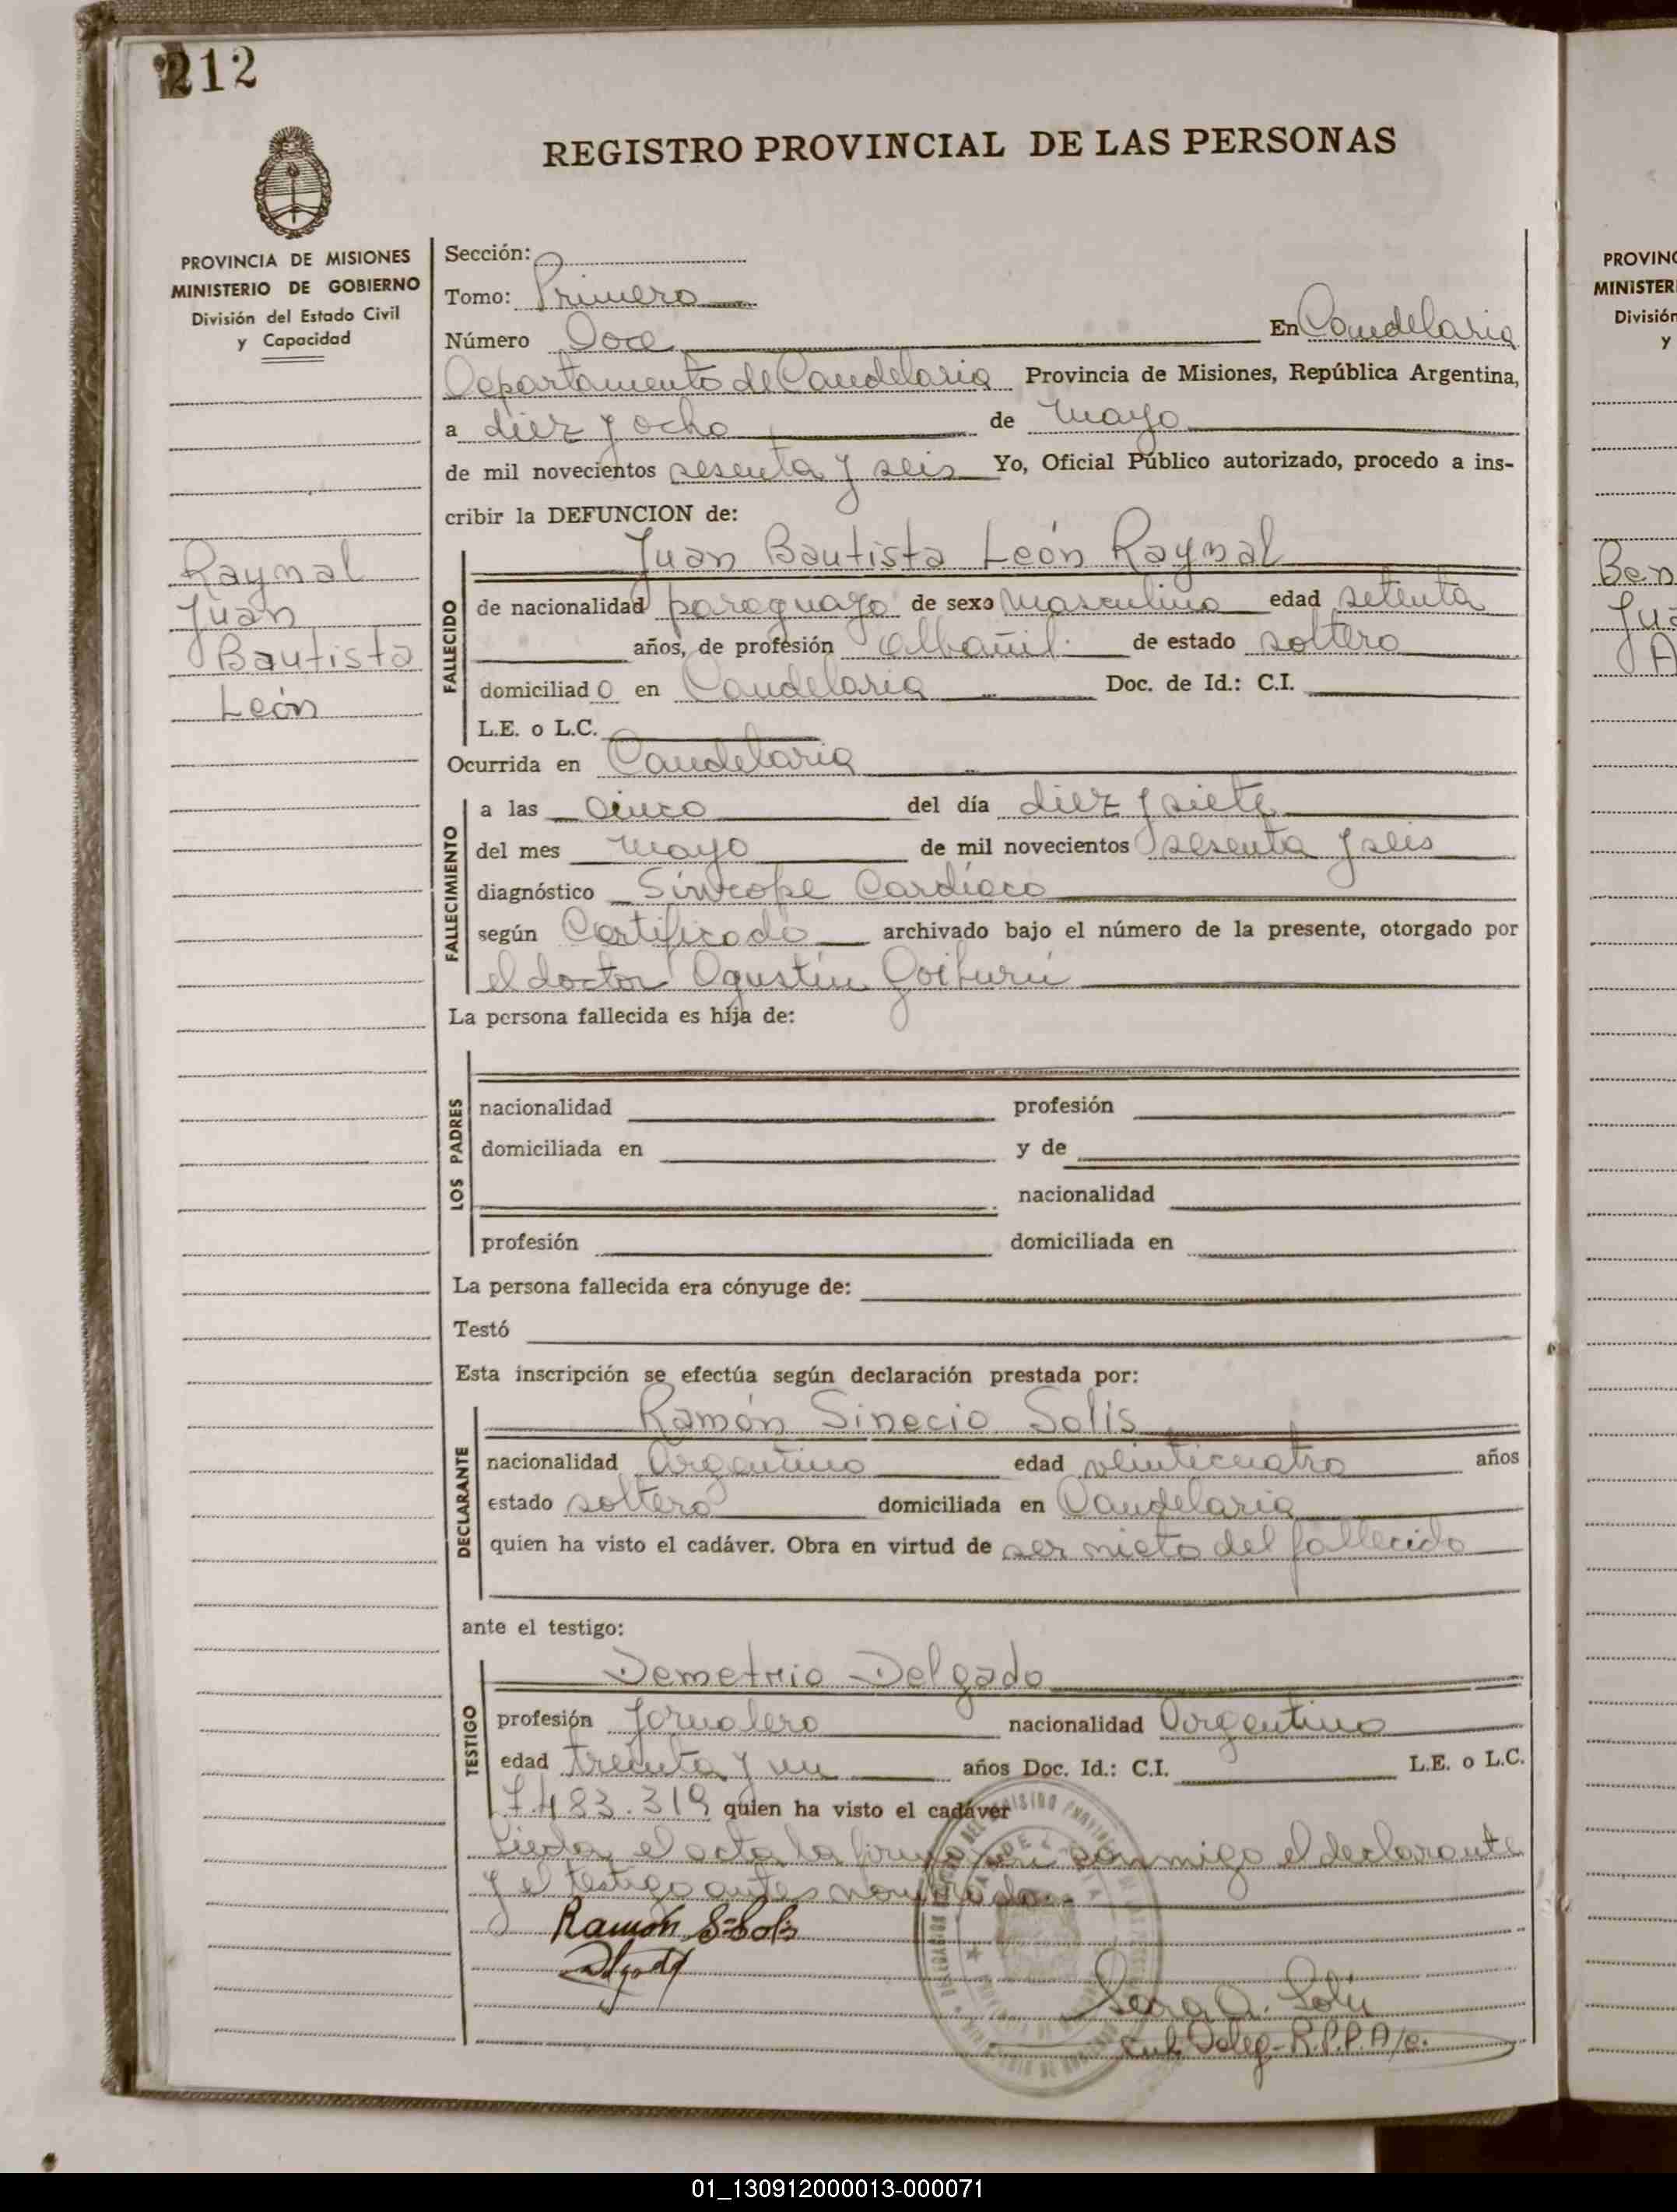 212
REGISTRO PROVINCIAL DE LAS PERSONAS
PROVINCIA DE MISIONES
MINISTERIO DE GOBIERNO
División del Estado Civil
y Capacidad
Raynal
Juan
Bautista
León
Sección:
Tomo: Primero
Número Doce En Candelaria
Departamento de Candelaria Provincia de Misiones, República Argentina,
a diez y ocho de mayo
de mil novecientos sesenta y seis Yo, Oficial Público autorizado, procedo a ins-
cribir la DEFUNCION de:
Juan Bautista León Raynal
FALLECIDO
de nacionalidad paraguayo de sexo masculino edad setenta
años, de profesión Albañil. de estado soltero
domiciliado en Candelaria Doc. de Id.: C.I.
L.E. o L.C.
Ocurrida en Candelaria
FALLECIMIENTO
a las cinco del día diez y siete
del mes mayo de mil novecientos sesenta y seis
diagnóstico Síncope Cardíaco
según Certificado archivado bajo el número de la presente, otorgado por
el doctor Agustín Goiburú
La persona fallecida es hija de:
LOS PADRES
nacionalidad profesión
domiciliada en y de
nacionalidad
profesión domiciliada en
La persona fallecida era cónyuge de:
Testó
Esta inscripción se efectúa según declaración prestada por:
Ramón Sinecio Solis
DECLARANTE
nacionalidad Argentino edad veinticuatro años
estado soltero domiciliada en Candelaria
quien ha visto el cadáver. Obra en virtud de ser nieto del fallecido
ante el testigo:
Demetrio Delgado
TESTIGO
profesión Jornalero nacionalidad Argentino
edad treinta y un años Doc. Id.: C.I. L.E. o L.C.
7.483.319 quien ha visto el cadáver
Leida el acta la firman conmigo el declarante
y el testigo antes nombrado.
Ramón S. Solis
Delgado
Sara A.
Deleg- R.P.P. A/c.
PROVINC
MINISTER
División
y
Ben
Ju
A
01_130912000013-000071